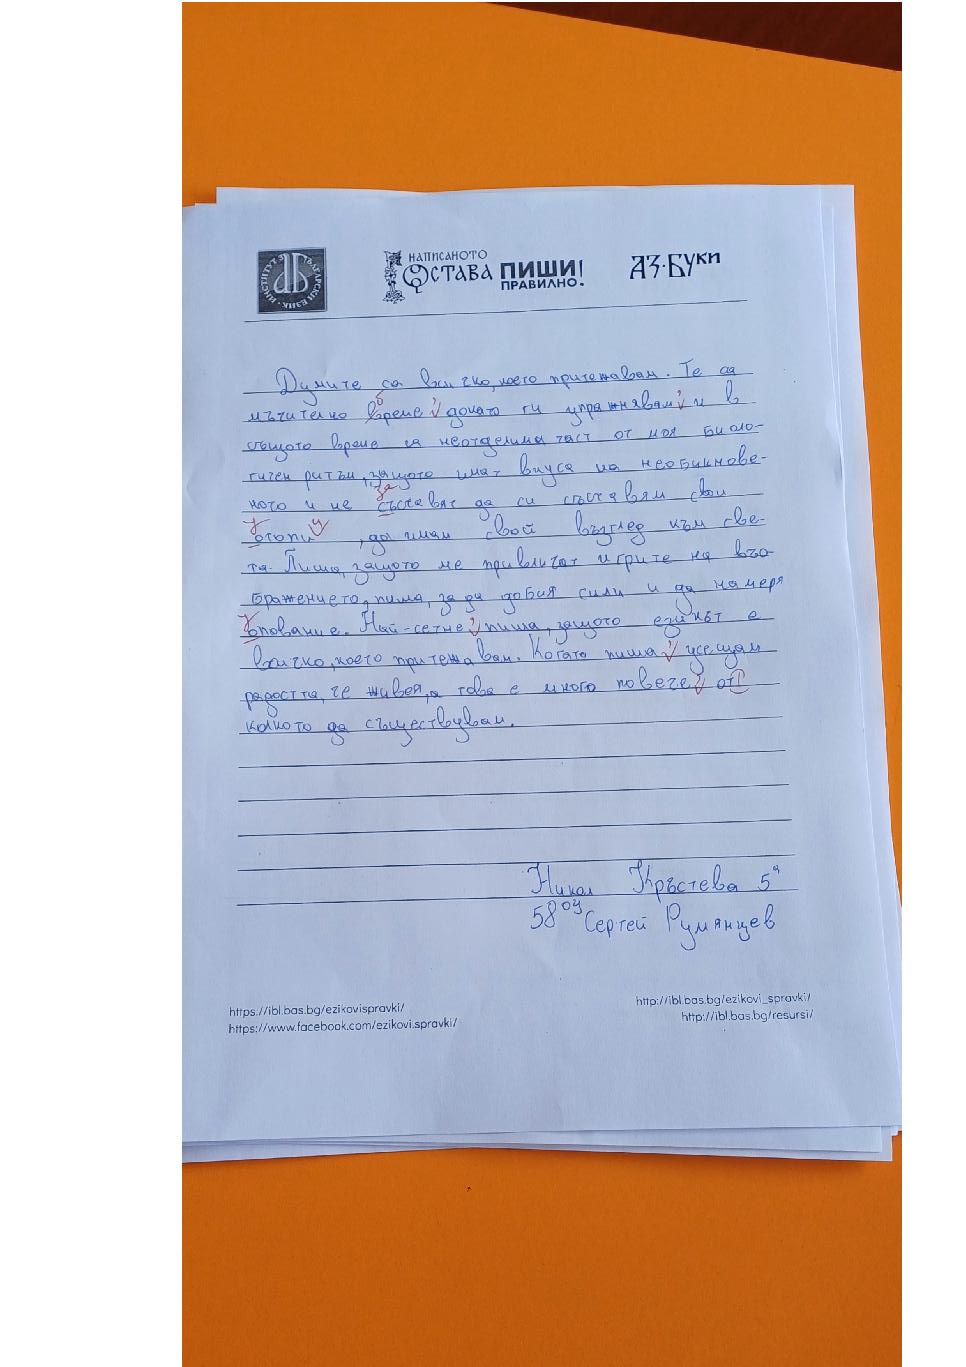 ИНСТИТУТ ЗА БЪЛГАРСКИ ЕЗИК
НАПИСАНОТО
ОСТАВА ПИШИ!
ПРАВИЛНО.
АЗ·БУКИ
Думите са всичко, което притежавам. Те са
мъчително време докато ги упражнявам и в
същото време са неотделима част от моя биоло-
гичен ритъм, защото имат вкуса на необикнове-
ното и не съставят да си съставям свои
отопи , да имам свой възглед към све-
та. Пиша, защото ме привличат игрите на въо-
бражението, пиша, за да добия сили и да намеря
опование. Най-сетне пиша, защото езикът е
всичко, което притежавам. Когато пиша усещам
радостта, че живея, а това е много повече от
колкото да съществувам.
Никол Кръстева 5а
58 ОУ Сергей Румянцев
https://ibl.bas.bg/ezikovispravki/
https://www.facebook.com/ezikovi.spravki/
http://ibl.bas.bg/ezikovi_spravki/
http://ibl.bas.bg/resursi/